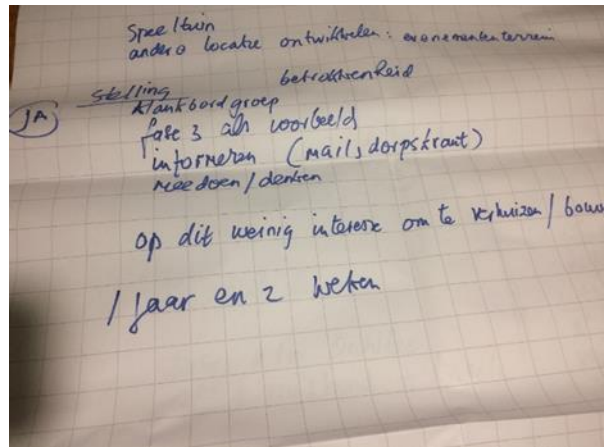 Speeltuin
andere locatie ontwikkelen: evenemententerrein
stelling betrokkenheid
JA klankbordgroep
fase 3 als voorbeeld
informeren (mails, dorpskrant)
meedoen/denken
op dit weinig interesse om te verhuizen/bouw
1 jaar en 2 weken